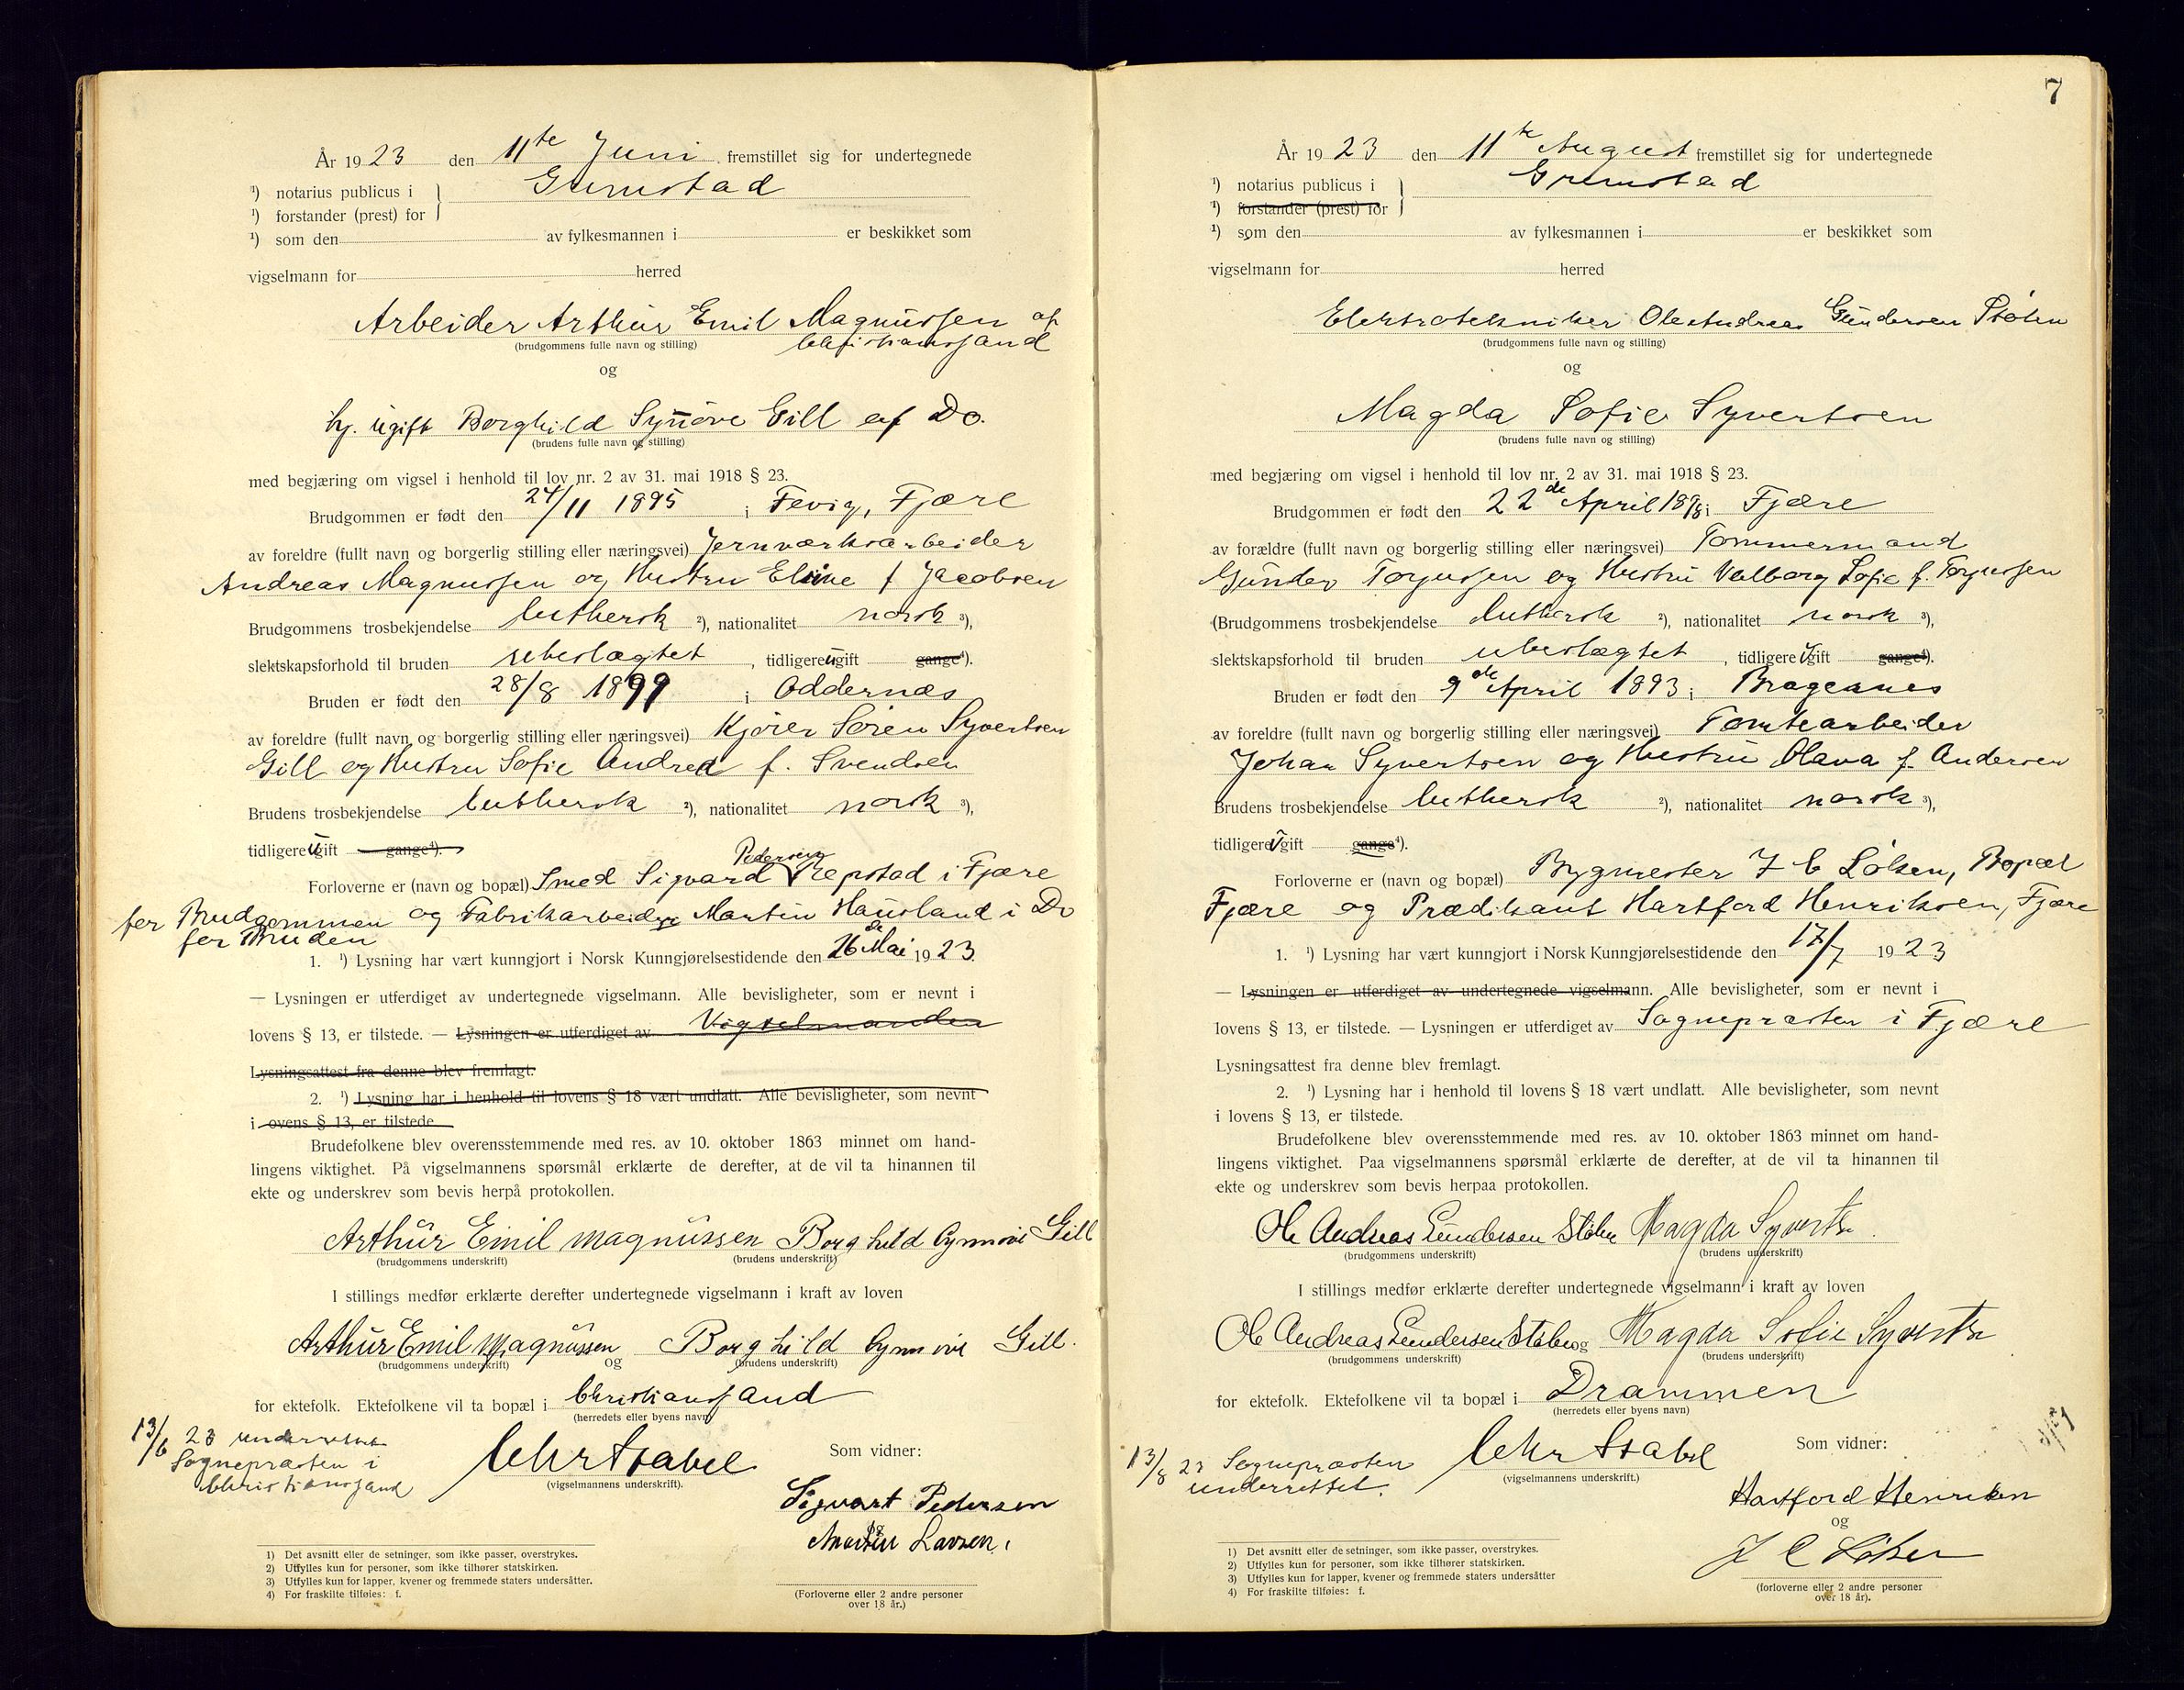 År 1923 den 11te Juni fremstillet sig for undertegnede
¹) notarius publicus i Grimstad
¹) forstander (prest) for
¹) som den av fylkesmannen i er beskikket som
vigselmann for herred
Arbeider Arthur Emil Magnussen af
Christianssand
(brudgommens fulle navn og stilling)
og
ugift Borghild Synöve Gill af Do.
(brudens fulle navn og stilling)
med begjæring om vigsel i henhold til lov nr. 2 av 31. mai 1918 § 23.
Brudgommen er født den 24/11 1895 i Fevig, Fjære
av foreldre (fullt navn og borgerlig stilling eller næringsvei) Jernværksarbeider
Andreas Magnussen og Hustru Eline f Jacobsen
Brudgommens trosbekjendelse luthersk ²), nationalitet norsk ³),
slektskapsforhold til bruden ubeslægtet, tidligere ugift gange⁴).
Bruden er født den 28/8 1899 i Oddernæs
av foreldre (fullt navn og borgerlig stilling eller næringsvei) Kjører Sören Syvertsen
Gill og Hustru Sofie Andrea f. Svendsen
Brudens trosbekjendelse luthersk ²), nationalitet norsk ³),
tidligere ugift gange⁴).
Pedersen
Forloverne er (navn og bopæl) Smed Sigvard Repstad i Fjære
for Brudgommen og Fabrikarbeider Martin Hausland i Do
for Bruden
1. ¹) Lysning har vært kunngjort i Norsk Kunngjørelsestidende den 26de Mai 1923
— Lysningen er utferdiget av undertegnede vigselmann. Alle bevisligheter, som er nevnt i
lovens § 13, er tilstede. — Lysningen er utferdiget av Vigselmanden
Lysningsattest fra denne blev fremlagt.
2. ¹) Lysning har i henhold til lovens § 18 vært undlatt. Alle bevisligheter, som nevnt
i ovens § 13, er tilstede.
Brudefolkene blev overensstemmende med res. av 10. oktober 1863 minnet om hand-
lingens viktighet. På vigselmannens spørsmål erklærte de derefter, at de vil ta hinannen til
ekte og underskrev som bevis herpå protokollen.
Arthur Emil Magnussen Borghild Synnöve Gill
(brudgommens underskrift) (brudens underskrift)
I stillings medfør erklærte derefter undertegnede vigselmann i kraft av loven
Arthur Emil Magnussen og Borghild Synnöve Gill.
(brudgommens underskrift) (brudens underskrift)
for ektefolk. Ektefolkene vil ta bopæl i Christianssand
(herredets eller byens navn)
13/6 23 underrettet
Sognepræsten i
Christianssand
Chr Stabel
(vigselmannens underskrift).
Som vidner:
Sigvart Pedersen
og
Martin Larsen
(Forloverne eller 2 andre personer
over 18 år.)
1) Det avsnitt eller de setninger, som ikke passer, overstrykes.
2) Utfylles kun for personer, som ikke tilhører statskirken.
3) Utfylles kun for lapper, kvener og fremmede staters undersåtter.
4) For fraskilte tilføies: f.
7
År 1923 den 11te August fremstillet sig for undertegnede
¹) notarius publicus i Grimstad
¹) forstander (prest) for
¹) som den av fylkesmannen i er beskikket som
vigselmann for herred
Elektrotekniker Ole Andreas Gundersen Stølen
(brudgommens fulle navn og stilling)
og
Magda Sofie Syvertsen
(brudens fulle navn og stilling)
med begjæring om vigsel i henhold til lov nr. 2 av 31. mai 1918 § 23.
Brudgommen er født den 22de April 1898 i Fjære
av forældre (fullt navn og borgerlig stilling eller næringsvei) Tømmermand
Gunder Torjussen og Hustru Valborg Sofie f. Torjussen
(Brudgommens trosbekjendelse luthersk ²), nationalitet norsk ³),
slektskapsforhold til bruden ubeslægtet, tidligere Ugift gange⁴).
Bruden er født den 9de April 1893 i Bragernes
av foreldre (fullt navn og borgerlig stilling eller næringsvei) Tomtearbeider
Johan Syvertsen og Hustru Olava f. Andersen
Brudens trosbekjendelse luthersk ²), nationalitet norsk ³),
tidligere Ugift gange⁴).
Forloverne er (navn og bopæl) Bygmester J C Löken, Bopæl
Fjære og Prædikant Hartford Henriksen, Fjære
1. ¹) Lysning har vært kunngjort i Norsk Kunngjørelsestidende den 17/7 1923
— Lysningen er utferdiget av undertegnede vigselmann. Alle bevisligheter, som er nevnt i
lovens § 13, er tilstede. — Lysningen er utferdiget av Sognepræsten i Fjære
Lysningsattest fra denne blev fremlagt.
2. ¹) Lysning har i henhold til lovens § 18 vært undlatt. Alle bevisligheter, som nevnt
i lovens § 13, er tilstede.
Brudefolkene blev overensstemmende med res. av 10. oktober 1863 minnet om hand-
lingens viktighet. Paa vigselmannens spørsmål erklærte de derefter, at de vil ta hinannen til
ekte og underskrev som bevis herpaa protokollen.
Ole Andreas Gundersen Stølen Magda Syvertsen
(brudgommens underskrift) (brudens underskrift)
I stillings medfør erklærte derefter undertegnede vigselmann i kraft av loven
Ole Andreas Gundersen Stølen og Magda Sofie Syvertsen
(brudgommens underskrift) (brudens underskrift)
for ektefolk. Ektefolkene vil ta bopæl i Drammen
(herredets eller byens navn)
13/8 23 Sognepræsten
underrettet.
Chr Stabel
(vigselmannens underskrift.)
Som vidner:
Hartford Henriksen
og
J C Löken
(forloverne eller 2 andre personer
over 18 år).
1) Det avsnitt eller de setninger, som ikke passer, overstrykes.
2) Utfylles kun for personer, som ikke tilhører statskirken.
3) Utfylles kun for lapper, kvener og fremmede staters undersåtter
4) For fraskilte tilføies: f.